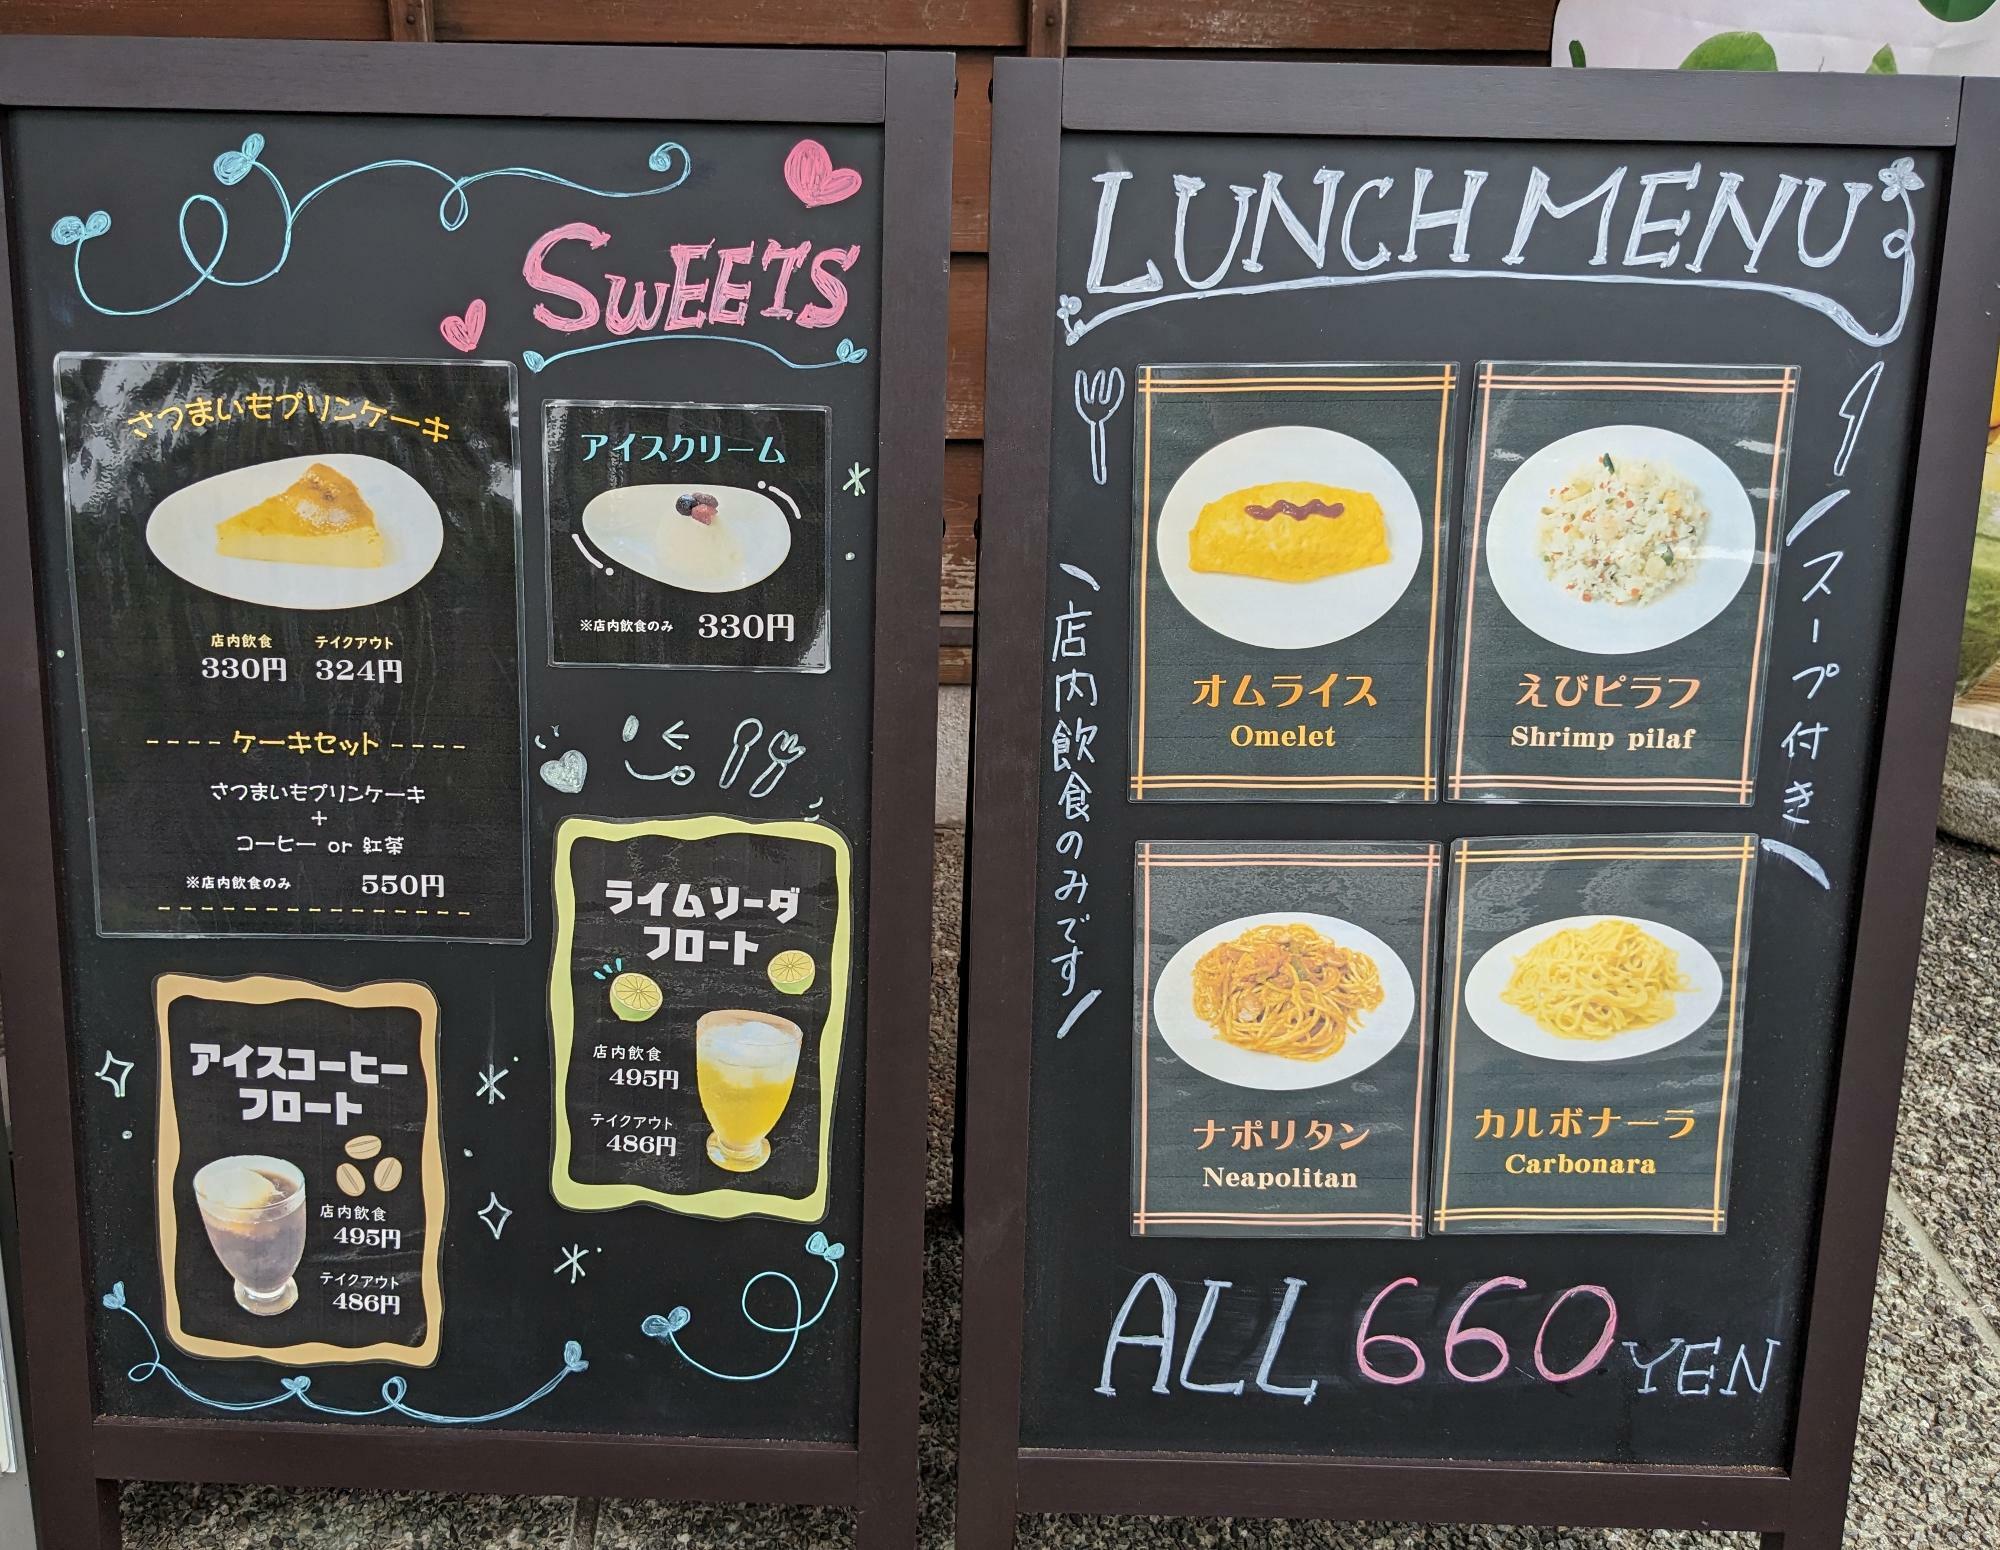 SWEETS
さつまいもプリンケーキ
店内飲食 テイクアウト
330円 324円
ケーキセット
さつまいもプリンケーキ
+
コーヒー or 紅茶
※店内飲食のみ 550円
アイスクリーム
※店内飲食のみ 330円
ライムソーダ
フロート
店内飲食
495円
テイクアウト
486円
アイスコーヒー
フロート
店内飲食
495円
テイクアウト
486円
LUNCH MENU
店内飲食のみです
スープ付き
オムライス
Omelet
えびピラフ
Shrimp pilaf
ナポリタン
Neapolitan
カルボナーラ
Carbonara
ALL 660 YEN